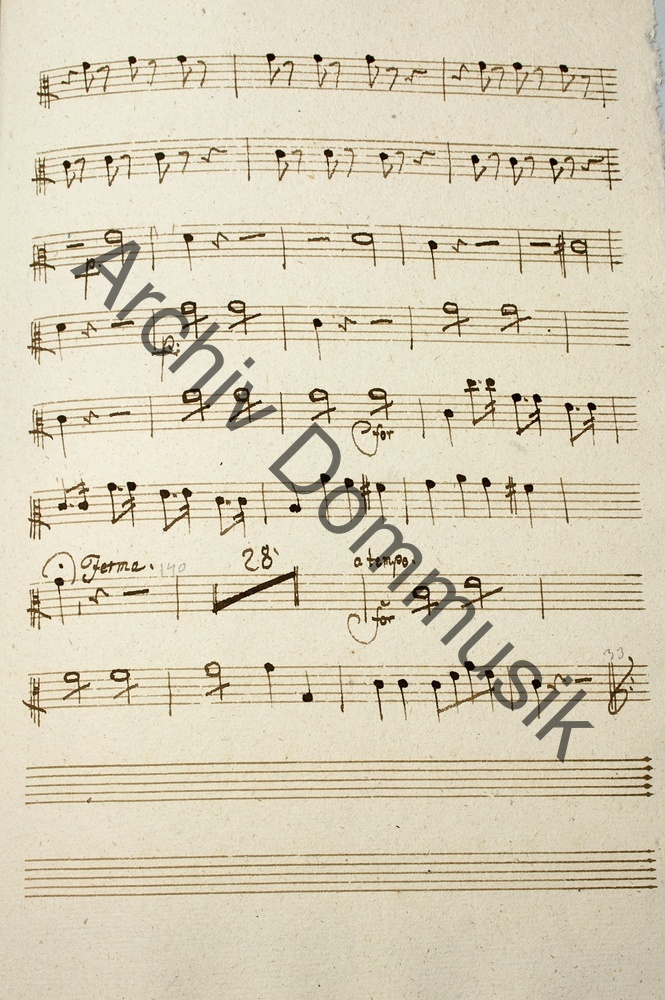 p.
p:
for
Ferma. 140 28 a tempo.
for
33
Archiv Dommusik